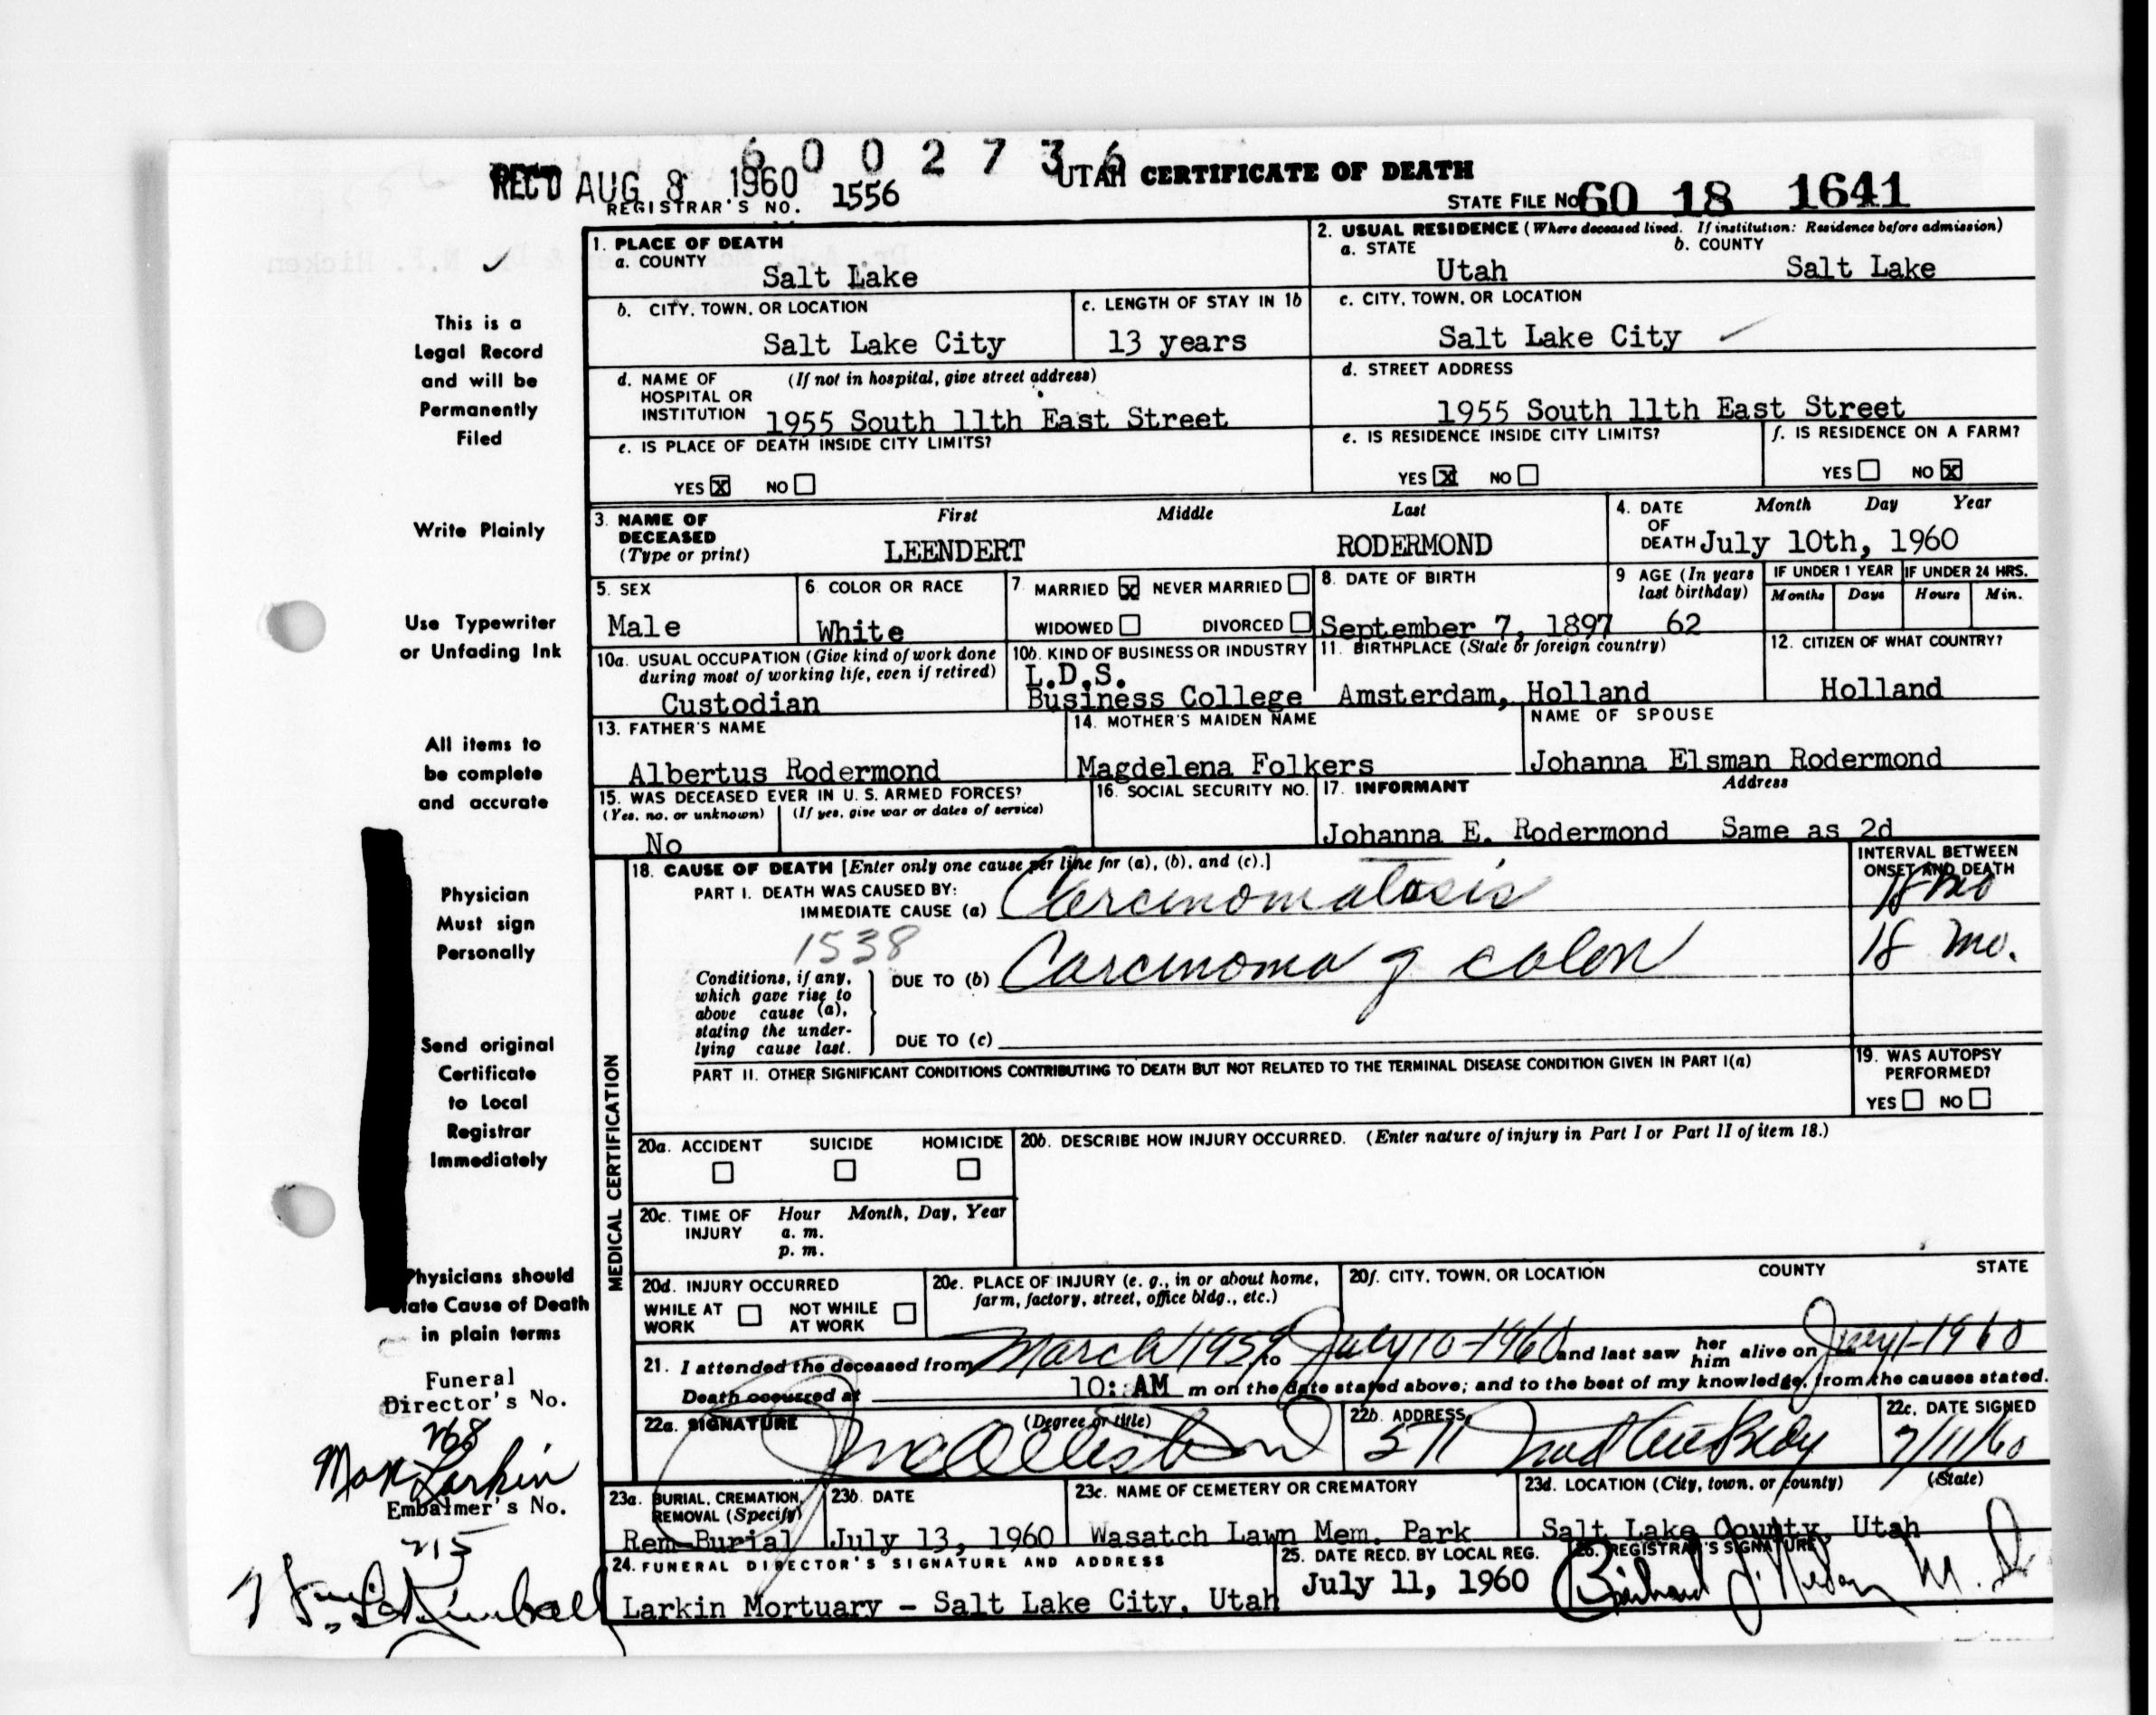 6 0 0 2 7 3 6
REC'D AUG 8 1960
UTAH CERTIFICATE OF DEATH
REGISTRAR'S NO. 1556
STATE FILE NO. 60 18 1641
1. PLACE OF DEATH
a. COUNTY
Salt Lake
2. USUAL RESIDENCE (Where deceased lived. If institution: Residence before admission)
a. STATE
Utah
b. COUNTY
Salt Lake
b. CITY, TOWN, OR LOCATION
Salt Lake City
c. LENGTH OF STAY IN 1b
13 years
c. CITY, TOWN, OR LOCATION
Salt Lake City
d. NAME OF HOSPITAL OR INSTITUTION
(If not in hospital, give street address)
1955 South 11th East Street
d. STREET ADDRESS
1955 South 11th East Street
e. IS PLACE OF DEATH INSIDE CITY LIMITS?
YES X NO
e. IS RESIDENCE INSIDE CITY LIMITS?
YES X NO
f. IS RESIDENCE ON A FARM?
YES NO X
3. NAME OF DECEASED
(Type or print)
First Middle Last
LEENDERT RODERMOND
4. DATE OF DEATH
Month Day Year
July 10th, 1960
5. SEX
Male
6. COLOR OR RACE
White
7. MARRIED X NEVER MARRIED
WIDOWED DIVORCED
8. DATE OF BIRTH
September 7, 1897
9 AGE (In years last birthday)
62
IF UNDER 1 YEAR
Months Days
IF UNDER 24 HRS.
Hours Min.
10a. USUAL OCCUPATION (Give kind of work done during most of working life, even if retired)
Custodian
10b. KIND OF BUSINESS OR INDUSTRY
L.D.S.
Business College
11. BIRTHPLACE (State or foreign country)
Amsterdam, Holland
12. CITIZEN OF WHAT COUNTRY?
Holland
13. FATHER'S NAME
Albertus Rodermond
14. MOTHER'S MAIDEN NAME
Magdelena Folkers
NAME OF SPOUSE
Johanna Elsman Rodermond
15. WAS DECEASED EVER IN U. S. ARMED FORCES?
(Yes, no, or unknown) (If yes, give war or dates of service)
No
16. SOCIAL SECURITY NO.
17. INFORMANT Address
Johanna E. Rodermond Same as 2d
MEDICAL CERTIFICATION
18. CAUSE OF DEATH [Enter only one cause per line for (a), (b), and (c).]
INTERVAL BETWEEN ONSET AND DEATH
PART I. DEATH WAS CAUSED BY:
IMMEDIATE CAUSE (a) Carcinomatosis 18 mo
1538
Conditions, if any, which gave rise to above cause (a), stating the underlying cause last.
DUE TO (b) Carcinoma of colon 18 mo.
DUE TO (c)
PART II. OTHER SIGNIFICANT CONDITIONS CONTRIBUTING TO DEATH BUT NOT RELATED TO THE TERMINAL DISEASE CONDITION GIVEN IN PART I(a)
19. WAS AUTOPSY PERFORMED?
YES NO
20a. ACCIDENT SUICIDE HOMICIDE
20b. DESCRIBE HOW INJURY OCCURRED. (Enter nature of injury in Part I or Part II of item 18.)
20c. TIME OF INJURY
Hour Month, Day, Year
a. m.
p. m.
20d. INJURY OCCURRED
WHILE AT WORK NOT WHILE AT WORK
20e. PLACE OF INJURY (e. g., in or about home, farm, factory, street, office bldg., etc.)
20f. CITY, TOWN, OR LOCATION COUNTY STATE
21. I attended the deceased from March 1959 to July 10-1960 and last saw her him alive on 1-1960
Death occurred at 10: AM m on the date stated above; and to the best of my knowledge, from the causes stated.
22a. SIGNATURE (Degree or title)
22b. ADDRESS
22c. DATE SIGNED
7/11/60
23a. BURIAL, CREMATION, REMOVAL (Specify)
Rem-Burial
23b. DATE
July 13, 1960
23c. NAME OF CEMETERY OR CREMATORY
Wasatch Lawn Mem. Park
23d. LOCATION (City, town, or county) (State)
Salt Lake County, Utah
24. FUNERAL DIRECTOR'S SIGNATURE AND ADDRESS
Larkin Mortuary - Salt Lake City, Utah
25. DATE RECD. BY LOCAL REG.
July 11, 1960
26. REGISTRAR'S SIGNATURE
M. D.
This is a
Legal Record
and will be
Permanently
Filed
Write Plainly
Use Typewriter
or Unfading Ink
All items to
be complete
and accurate
Physician
Must sign
Personally
Send original
Certificate
to Local
Registrar
Immediately
Physicians should
State Cause of Death
in plain terms
Funeral
Director's No.
268
Max Larkin
Embalmer's No.
215
Kimball